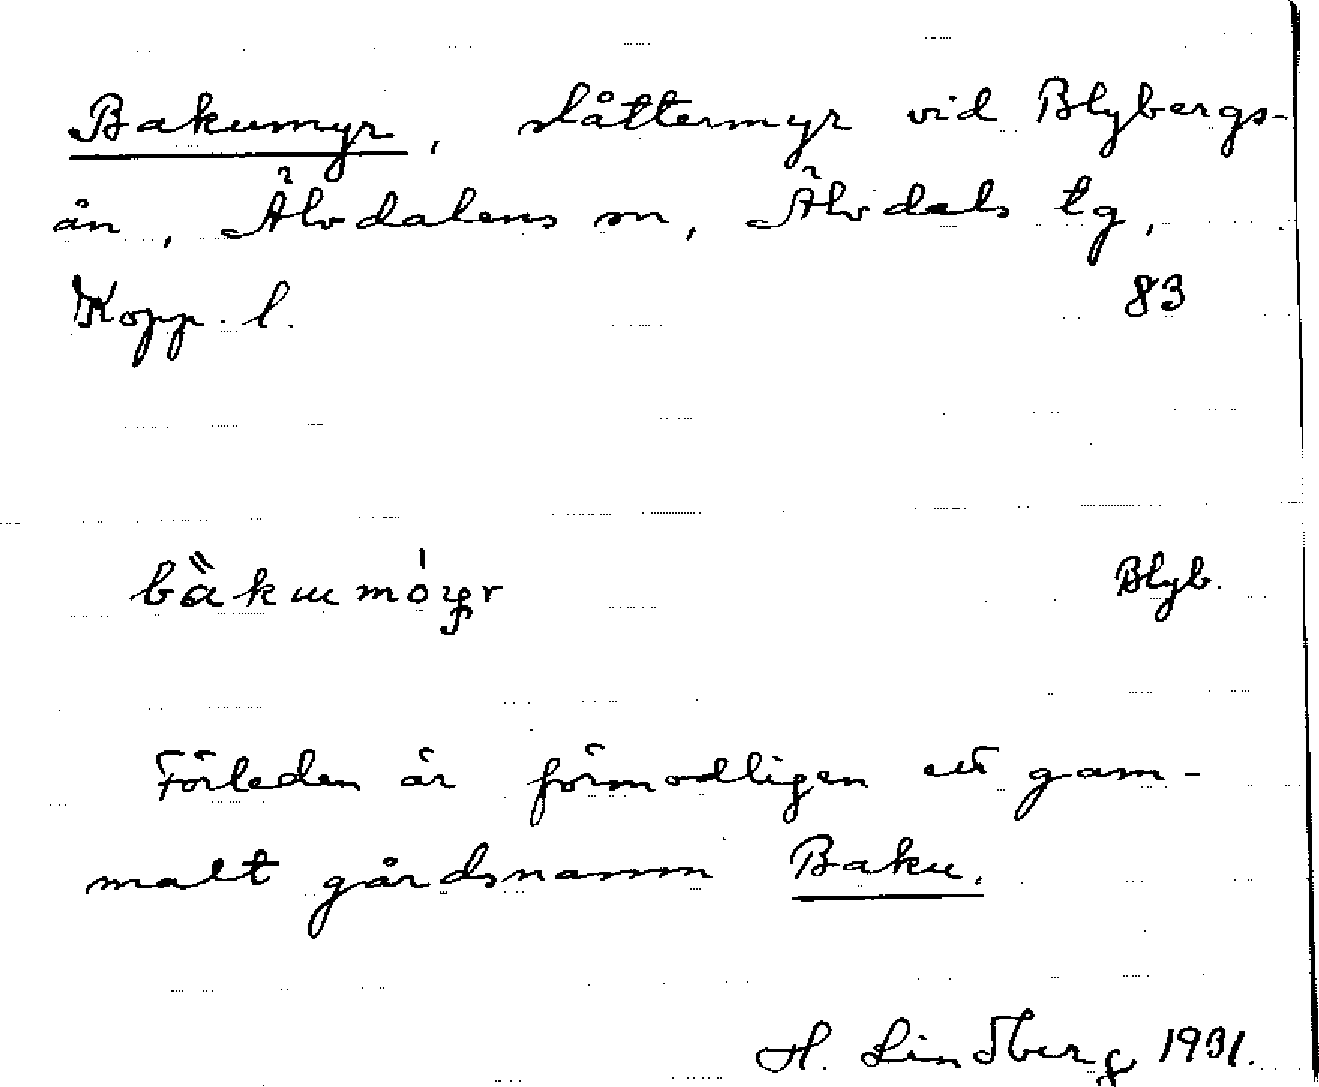 Bakumyr, slåttermyr vid Blybergs-
ån, Älvdalens sn, Älvdals tg,
Kopp. l. 83
Blyb.
Förleden är förmodligen ett gam-
malt gårdsnamn Baku.
H. Lindberg 1931.